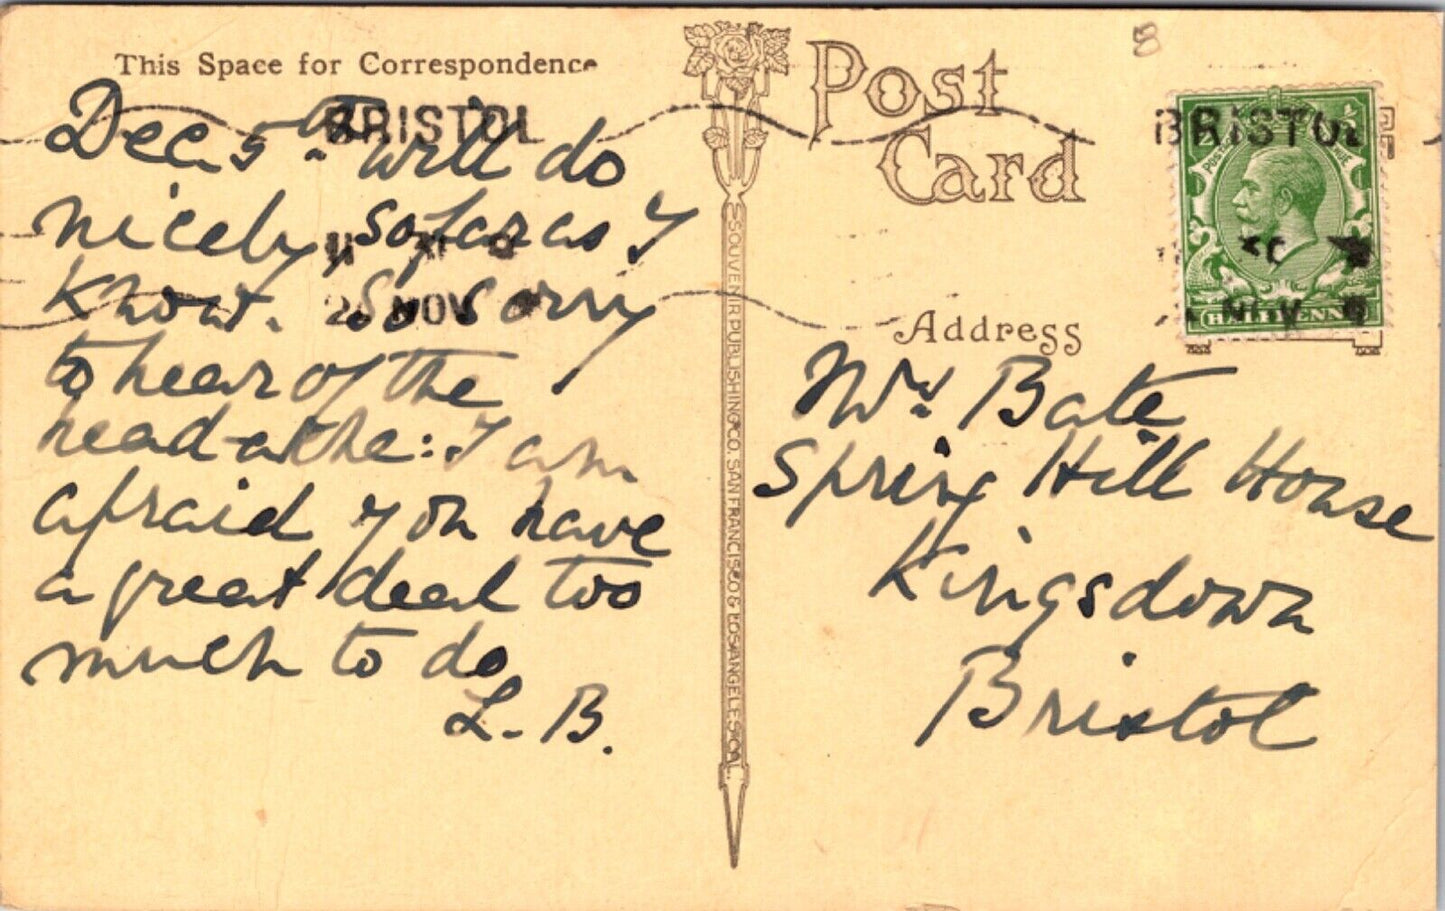 This Space for Correspondence
Dec. 5th will do
nicely, so far as I
know. So sorry
to hear of the
head-ache: I am
afraid you have
a great deal too
much to do
L. B.
BRISTOL
NOV
SOUVENIR PUBLISHING CO. SAN FRANCISCO & LOS ANGELES CAL.
Post
Card
8
BRISTOL
HALFPENNY
Address
Mrs. Bate
Spring Hill House
Kingsdown
Bristol